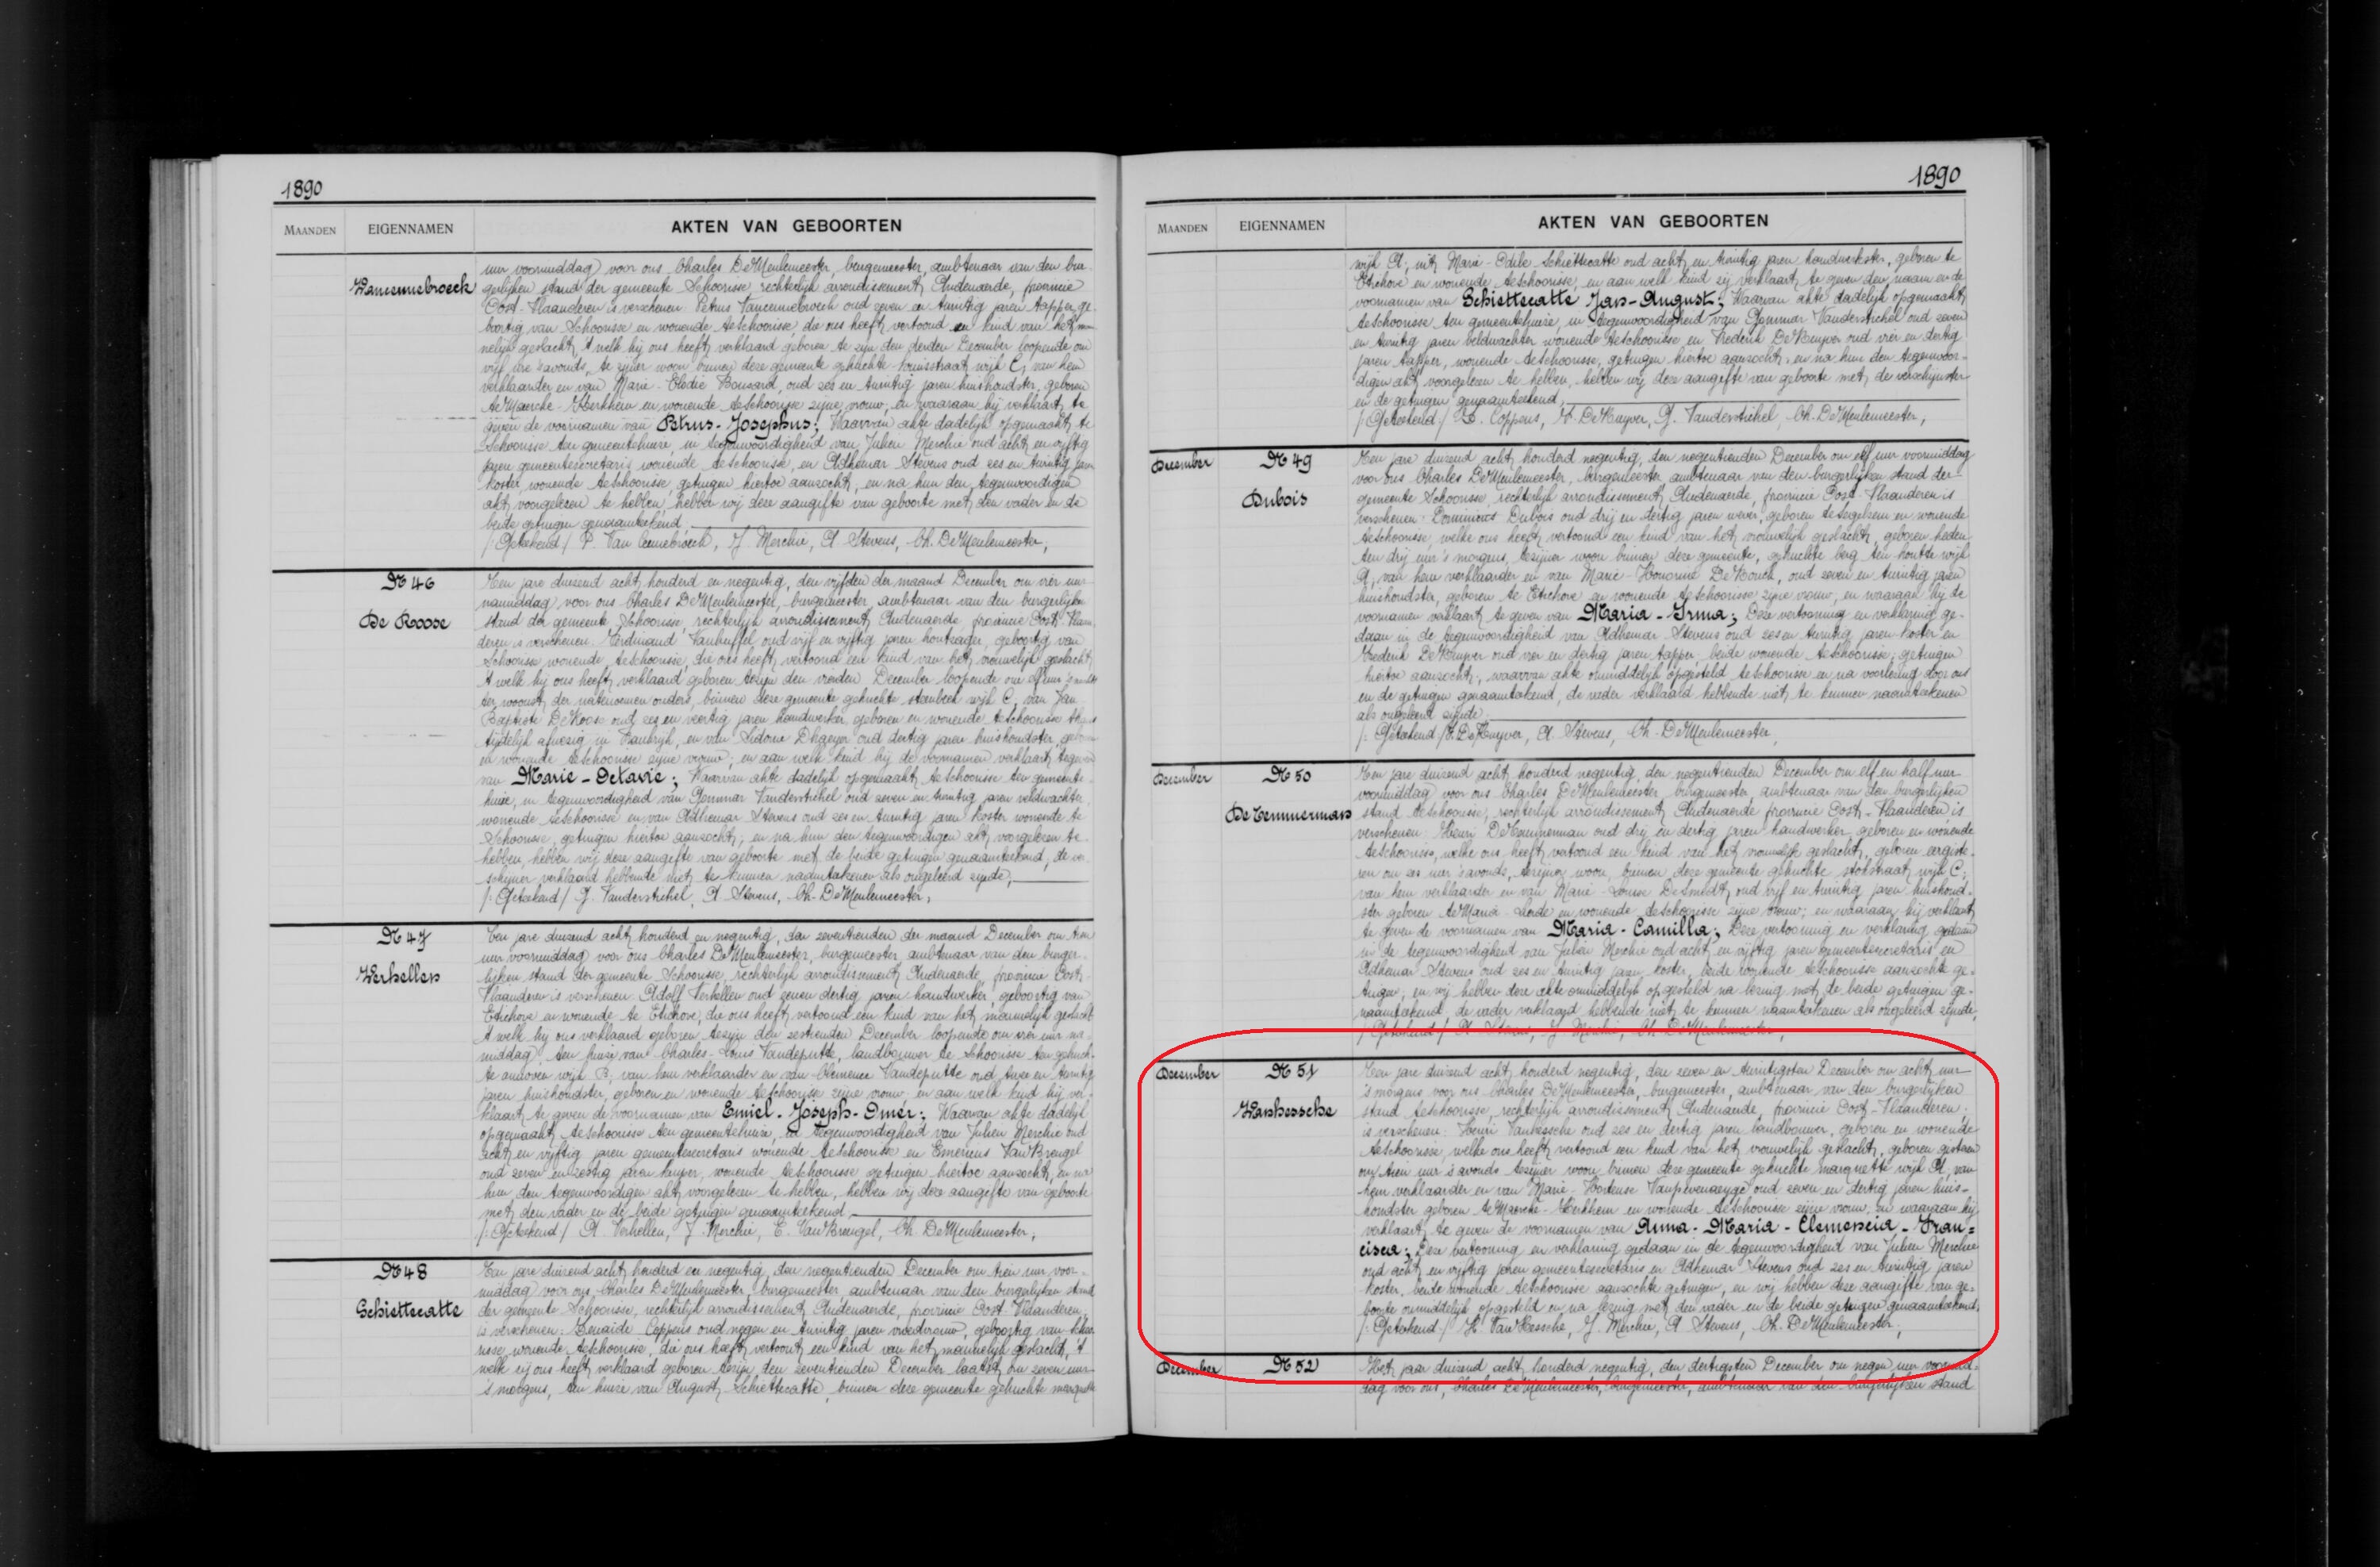 1890
MAANDEN EIGENNAMEN AKTEN VAN GEBOORTEN
uur voormiddag) voor ons Charles DeMeulemeester, burgemeester, ambtenaar van den bur-
Vancennebroeck
gerlijken stand der gemeente Schoorisse, rechterlijk arrondissement Audenaerde, provincie
Oost-Vlaanderen is verschenen Petrus Vancennebroeck oud zeven en twintig jaren tapper, ge-
boortig van Schoorisse en wonende te Schoorisse, die ons heeft vertoond een kind van het man-
nelijk geslacht, 't welk hij ons heeft verklaard geboren te zijn den derden December loopende om
vijf ure s'avonds, te zijner woon binnen deze gemeente gehuchte wijk C, van hem
verklaarder en van Marie-Elodie oud zes en twintig jaren huishoudster, geboren
te Maercke-Kerkhem en wonende te Schoorisse zijne vrouw; en waaraan hij verklaart te
geven de voornamen van Petrus-Josephus; Waarvan akte dadelijk opgemaakt te
Schoorisse ten gemeentehuize, in tegenwoordigheid van Julien Merchie oud acht en vijftig
jaren gemeentesecretaris wonende te Schoorisse, en Adhemar Stevens oud zes en twintig jaren
koster, wonende te Schoorisse, getuigen hiertoe aanzocht, en na hun den tegenwoordigen
akt voorgelezen te hebben, hebben wij deze aangifte van geboorte met den vader en de
beide getuigen genaamteekend.
/: Geteekend/ P. Van Cennebroeck, J. Merchie, A. Stevens, Ch. DeMeulemeester;
N 46
De Roose
Ten jare duizend acht honderd en negentig, den vijfden der maand December om vier uur
namiddag, voor ons Charles DeMeulemeester, burgemeester, ambtenaar van den burgerlijken
stand der gemeente Schoorisse, rechterlijk arrondissement Audenaerde, provincie Oost Vlaan-
deren is verschenen Ferdinand Vanhuffel oud vijf en vijftig jaren houtzager, geboortig van
Schoorisse, wonende te Schoorisse, die ons heeft vertoond een kind van het vrouwelijk geslacht
't welk hij ons heeft verklaard geboren te zijn den vierden December loopende om elf uur
ter woonst der natenoemen ouders, binnen deze gemeente gehuchte wijk C, van Jan
Baptiste DeRoose oud zes en veertig jaren handwerker, geboren en wonende te Schoorisse thans
tijdelijk afwezig in Frankrijk, en van Sidonie Dhaeyer oud dertig jaren huishoudster, geboren
en wonende te Schoorisse zijne vrouw; en aan welk kind hij de voornamen verklaart te geven
van Marie-Octavie; Waarvan akte dadelijk opgemaakt te Schoorisse ten gemeente-
huize, in tegenwoordigheid van Gommar Vanderstichel oud zeven en twintig jaren veldwachter,
wonende te Schoorisse en van Adhemar Stevens oud zes en twintig jaren koster wonende te
Schoorisse, getuigen hiertoe aanzocht, en na hun den tegenwoordigen akt voorgelezen te
hebben, hebben wij deze aangifte van geboorte met de beide getuigen genaamteekend, de ver-
schijner verklaard hebbende niet te kunnen naamteekenen als ongeleerd zijnde;
/: Geteekend/ G. Vanderstichel, A. Stevens, Ch. DeMeulemeester;
N 47
Verhellen
Ten jare duizend acht honderd en negentig, den zeventienden der maand December om tien
uur voormiddag voor ons Charles DeMeulemeester, burgemeester ambtenaar van den burger-
lijken stand der gemeente Schoorisse, rechterlijk arrondissement Audenaerde, provincie Oost
Vlaanderen is verschenen Adolf Verhellen oud zeven dertig jaren handwerker, geboortig van
Etichove en wonende te Etichove, die ons heeft vertoond een kind van het mannelijk geslacht
't welk hij ons verklaard geboren te zijn den zestienden December loopende om vier uur na-
middag, ten huize van Charles-Louis Vandeputte, landbouwer te Schoorisse ten gehuch-
te wijk B, van hem verklaarder en van Clemence Vandeputte oud twee en twintig
jaren huishoudster, geboren en wonende te Schoorisse zijne vrouw; en aan welk kind hij ver-
klaart te geven de voornamen van Emiel-Joseph-Omer; Waarvan akte dadelijk
opgemaakt te Schoorisse ten gemeentehuize, in tegenwoordigheid van Julien Merchie oud
acht en vijftig jaren gemeentesecretaris wonende te Schoorisse en Emericus VanBreugel
oud zeven en zestig jaren kuiper, wonende te Schoorisse getuigen hiertoe aanzocht, en na
hun den tegenwoordigen akt voorgelezen te hebben, hebben wij deze aangifte van geboorte
met den vader en de beide getuigen genaamteekend.
/: Geteekend/ A. Verhellen, J. Merchie, E. VanBreugel, Ch. DeMeulemeester;
N 48
Schiettecatte
Ten jare duizend acht honderd en negentig, den negentienden December om tien uur voor-
middag voor ons Charles DeMeulemeester, burgemeester ambtenaar van den burgerlijken stand
der gemeente Schoorisse, rechterlijk arrondissement Audenaerde, provincie Oost Vlaanderen,
is verschenen: Zenaide Coppens oud negen en twintig jaren vroedvrouw, geboortig van Schoo-
risse wonende te Schoorisse, die ons heeft vertoont een kind van het mannelijk geslacht, 't
welk zij ons heeft verklaard geboren te zijn den zeventienden December laatst, om zeven uur
's morgens, ten huize van August Schiettecatte, binnen deze gemeente gehuchte marquette
1890
MAANDEN EIGENNAMEN AKTEN VAN GEBOORTEN
wijk A; uit Marie-Odile Schiettecatte oud acht en twintig jaren handwerkster, geboren te
Etichove en wonende te Schoorisse, en aan welk kind zij verklaart te geven den naam en de
voornamen van Schiettecatte Jan-August; Waarvan akte dadelijk opgemaakt
te Schoorisse ten gemeentehuize, in tegenwoordigheid van Gommar Vanderstichel oud zeven
en twintig jaren veldwachter wonende te Schoorisse en Frederik DeRuyver oud vier en dertig
jaren tapper, wonende te Schoorisse, getuigen hiertoe aanzocht; en na hun den tegenwoor-
digen akt voorgelezen te hebben, hebben wij deze aangifte van geboorte met de verschijnster
en de getuigen genaamteekend.
/: Geteekend/ Z. Coppens, F. DeRuyver, G. Vanderstichel, Ch. DeMeulemeester,
December N 49
Dubois
Ten jare duizend acht honderd negentig, den negentienden December om elf uur voormiddag
voor ons Charles DeMeulemeester, burgemeester ambtenaar van den burgerlijken stand der
gemeente Schoorisse, rechterlijk arrondissement Audenaerde, provincie Oost-Vlaanderen is
verschenen: Dominicus Dubois oud drij en dertig jaren wever, geboren te Segelsem en wonende
te Schoorisse, welke ons heeft vertoond een kind van het vrouwelijk geslacht, geboren heden
ten drij uur 's morgens, te zijner woon binnen deze gemeente, gehuchte berg ten houtte wijk
A, van hem verklaarder en van Marie-Honorine oud zeven en twintig jaren
huishoudster, geboren te Etichove en wonende te Schoorisse zijne vrouw, en waaraan hij de
voornamen verklaart te geven van Maria-Irma; Deze vertooning en verklaring ge-
daan in de tegenwoordigheid van Adhemar Stevens oud zes en twintig jaren koster en
Frederik DeRuyver oud vier en dertig jaren tapper beide wonende te Schoorisse; getuigen
hiertoe aanzocht; waarvan akte onmiddelijk opgesteld te Schoorisse en na voorlezing door ons
en de getuigen genaamteekend, de vader verklaard hebbende niet te kunnen naamteekenen
als ongeleerd zijnde.
/: Geteekend/ F. DeRuyver, A. Stevens, Ch. DeMeulemeester,
December N 50
DeTemmerman
Ten jare duizend acht honderd negentig, den negentienden December om elf en half uur
voormiddag) voor ons Charles DeMeulemeester, burgemeester, ambtenaar van den burgerlijken
stand te Schoorisse, rechterlijk arrondissement Audenaerde provincie Oost-Vlaanderen is
verschenen: Henri DeTemmerman oud drij en dertig jaren handwerker, geboren en wonende
te Schoorisse, welke ons heeft vertoond een kind van het vrouwelijk geslacht, geboren eergiste-
ren om zes uur s'avonds, te zijner woon, binnen deze gemeente gehuchte wijk C,
van hem verklaarder en van Marie-Louise DeSmedt oud vijf en twintig jaren huishoud-
ster geboren te Maria-Hoorde en wonende te Schoorisse zijne vrouw; en waaraan hij verklaart
te geven de voornamen van Maria-Camilla; Deze vertooning en verklaring gedaan
in de tegenwoordigheid van Julien Merchie oud acht en vijftig jaren gemeentesecretaris en
Adhemar Stevens oud zes en twintig jaren koster, beide wonende te Schoorisse aanzochte ge-
tuigen, en wij hebben deze akte onmiddelijk opgesteld na lezing met de beide getuigen ge-
naamteekend, de vader verklaard hebbende niet te kunnen naamteekenen als ongeleerd zijnde;
/: Geteekend/ A. Stevens, J. Merchie, Ch. DeMeulemeester,
December N 51
Vanhessche
Ten jare duizend acht honderd negentig, den zeven en twintigsten December om acht uur
's morgens voor ons Charles DeMeulemeester, burgemeester, ambtenaar van den burgerlijken
stand te Schoorisse, rechterlijk arrondissement Audenaerde, provincie Oost-Vlaanderen;
is verschenen: Henri Vanhessche oud zes en dertig jaren landbouwer, geboren en wonende
te Schoorisse, welke ons heeft vertoond een kind van het vrouwelijk geslacht, geboren gisteren
om tien uur s'avonds te zijner woon, binnen deze gemeente gehuchte marquette wijk A, van
hem verklaarder en van Marie-Hortense oud zeven en dertig jaren huis-
houdster geboren te Maercke-Kerkhem en wonende te Schoorisse zijne vrouw, en waaraan hij
verklaart te geven de voornamen van Anna-Maria-Clemencia-Fran=
cisca; Deze vertooning en verklaring gedaan in de tegenwoordigheid van Julien Merchie
oud acht en vijftig jaren gemeentesecretaris en Adhemar Stevens oud zes en twintig jaren
koster, beide wonende te Schoorisse aanzochte getuigen, en wij hebben deze aangifte van ge-
boorte onmiddelijk opgesteld en na lezing met den vader en de beide getuigen genaamteekend;
/: Geteekend/ H. VanHessche, J. Merchie, A. Stevens, Ch. DeMeulemeester;
December N 52
Het jaar duizend acht honderd negentig, den dertigsten December om negen uur voormid-
dag voor ons, Charles DeMeulemeester, burgemeester, ambtenaar van den burgerlijken stand